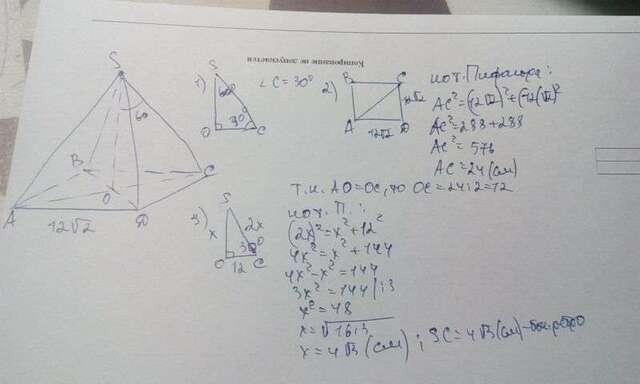 Копирование не допускается
S
60
B
C
O
A
12√2
D
1) S
60°
O
30°
C
∠C = 30°
2) B
C
12√2
A
12√2
D
по т. Пифагора:
AC² = (12√2)² + (12√2)²
AC² = 288 + 288
AC² = 576
AC = 24 (см)
Т.к. AO = OC, то OC = 24:2 = 12
3) S
x
2x
30°
O
12
C
по т. П.:
(2x)² = x² + 12²
4x² = x² + 144
4x² - x² = 144
3x² = 144 | :3
x² = 48
x = √16·3
x = 4√3 (см); SC = 4√3 (см) - бок. ребро